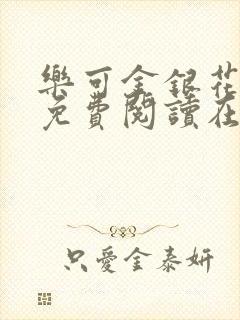 樂可金銀花
免費閱讀在
只愛金泰妍